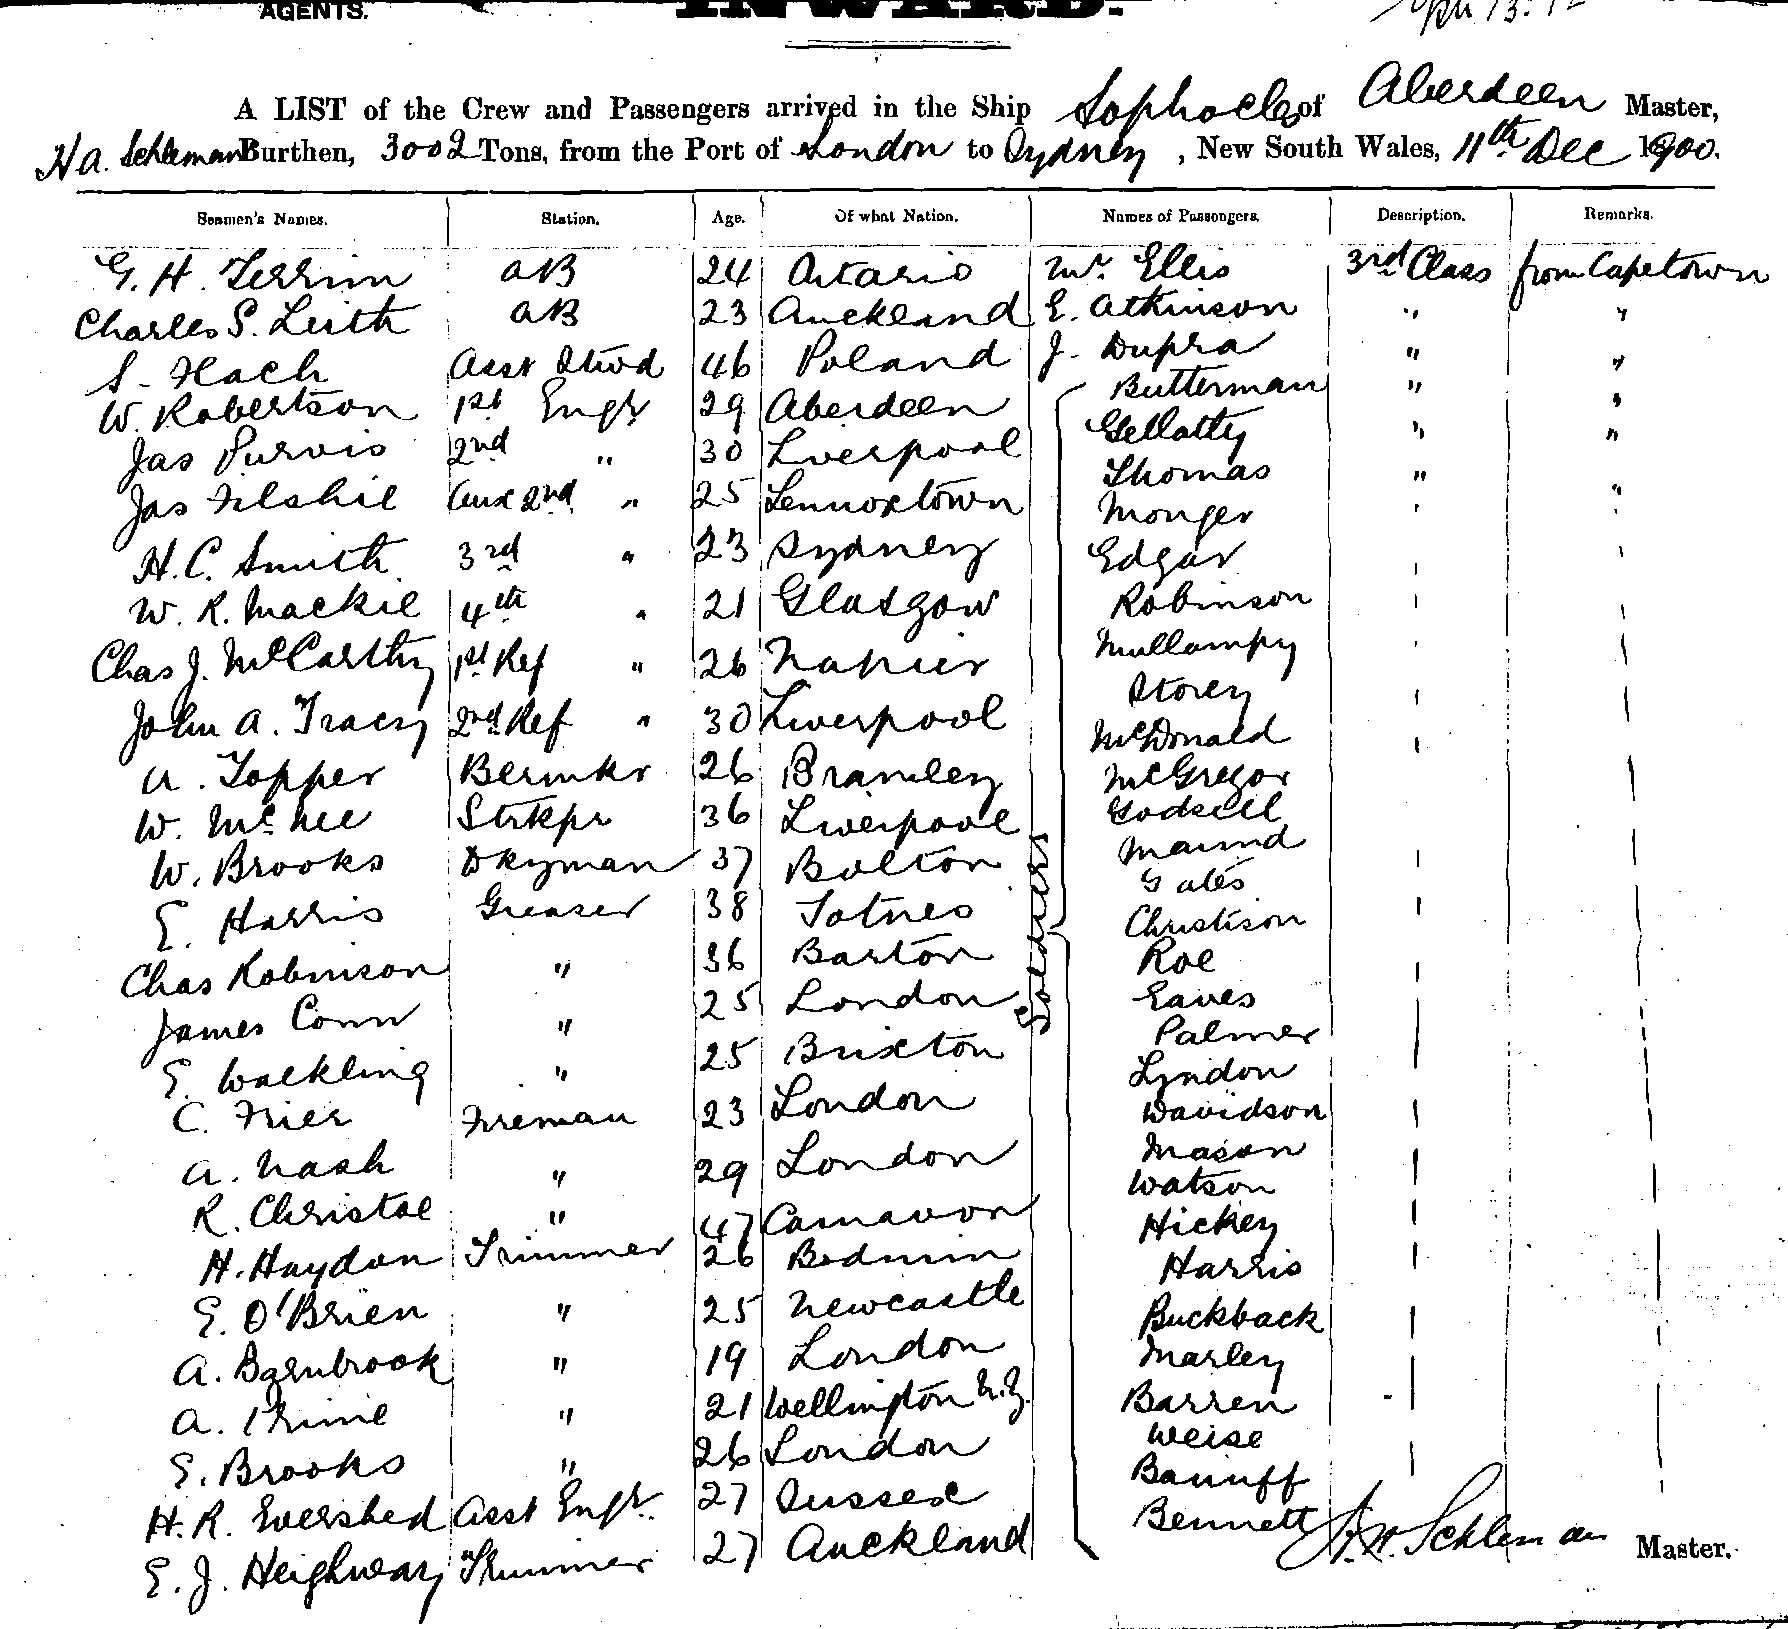 AGENTS. INWARD.
A LIST of the Crew and Passengers arrived in the Ship Sophocles of Aberdeen Master,
H A. Schleman Burthen, 3002 Tons, from the Port of London to Sydney, New South Wales, 11th Dec 1900.
Seamen's Names. Station. Age. Of what Nation. Names of Passengers. Description. Remarks.
G. H. Terrim AB 24 Ontario Mr. Ellis 3rd Class from Capetown
Charles S. Leith AB 23 Auckland E. Atkinson " "
S. Flach Asst Stwd 46 Poland J. Dupra " "
W. Robertson 1st Engr 29 Aberdeen Butterman " "
Jas Purvis 2nd " 30 Liverpool Gellatly " "
Jas Filshie Aux 2nd " 25 Lennoxtown Thomas " "
H. C. Smith 3rd " 23 Sydney Monger
W. R. Mackie 4th " 21 Glasgow Edgar
Chas J. McCarthy 1st Ref " 26 Napier Robinson
John A. Tracy 2nd Ref " 30 Liverpool Mullampy
A. Topper Bermkr 26 Bramley Storey
W. McNee Strkpr 36 Liverpool McDonald
W. Brooks Dkyman 37 Bolton McGregor
E. Harris Greaser 38 Totnes Godsell
Chas Robinson " 36 Barton Maund
James Conn " 25 London Gates
E. Walkling " 25 Brixton Christison
C. Frier Fireman 23 London Roe
A. Nash " 29 London Eaves
R. Christoe " 47 Carnavon Palmer
H. Haydon Trimmer 26 Bodmin Lyndon
E. O'Brien " 25 Newcastle Davidson
A. Barnbrook " 19 London Mason
A. Prime " 21 Wellington N.Z. Watson
E. Brooks " 26 London Hickey
H. R. Evershed Asst Engr. 27 Sussex Harris
E. J. Heighway Trimmer 27 Auckland Buckback
Marley
Barren
Weise
Banuff
Bennett
Soldiers
H. A. Schleman Master.